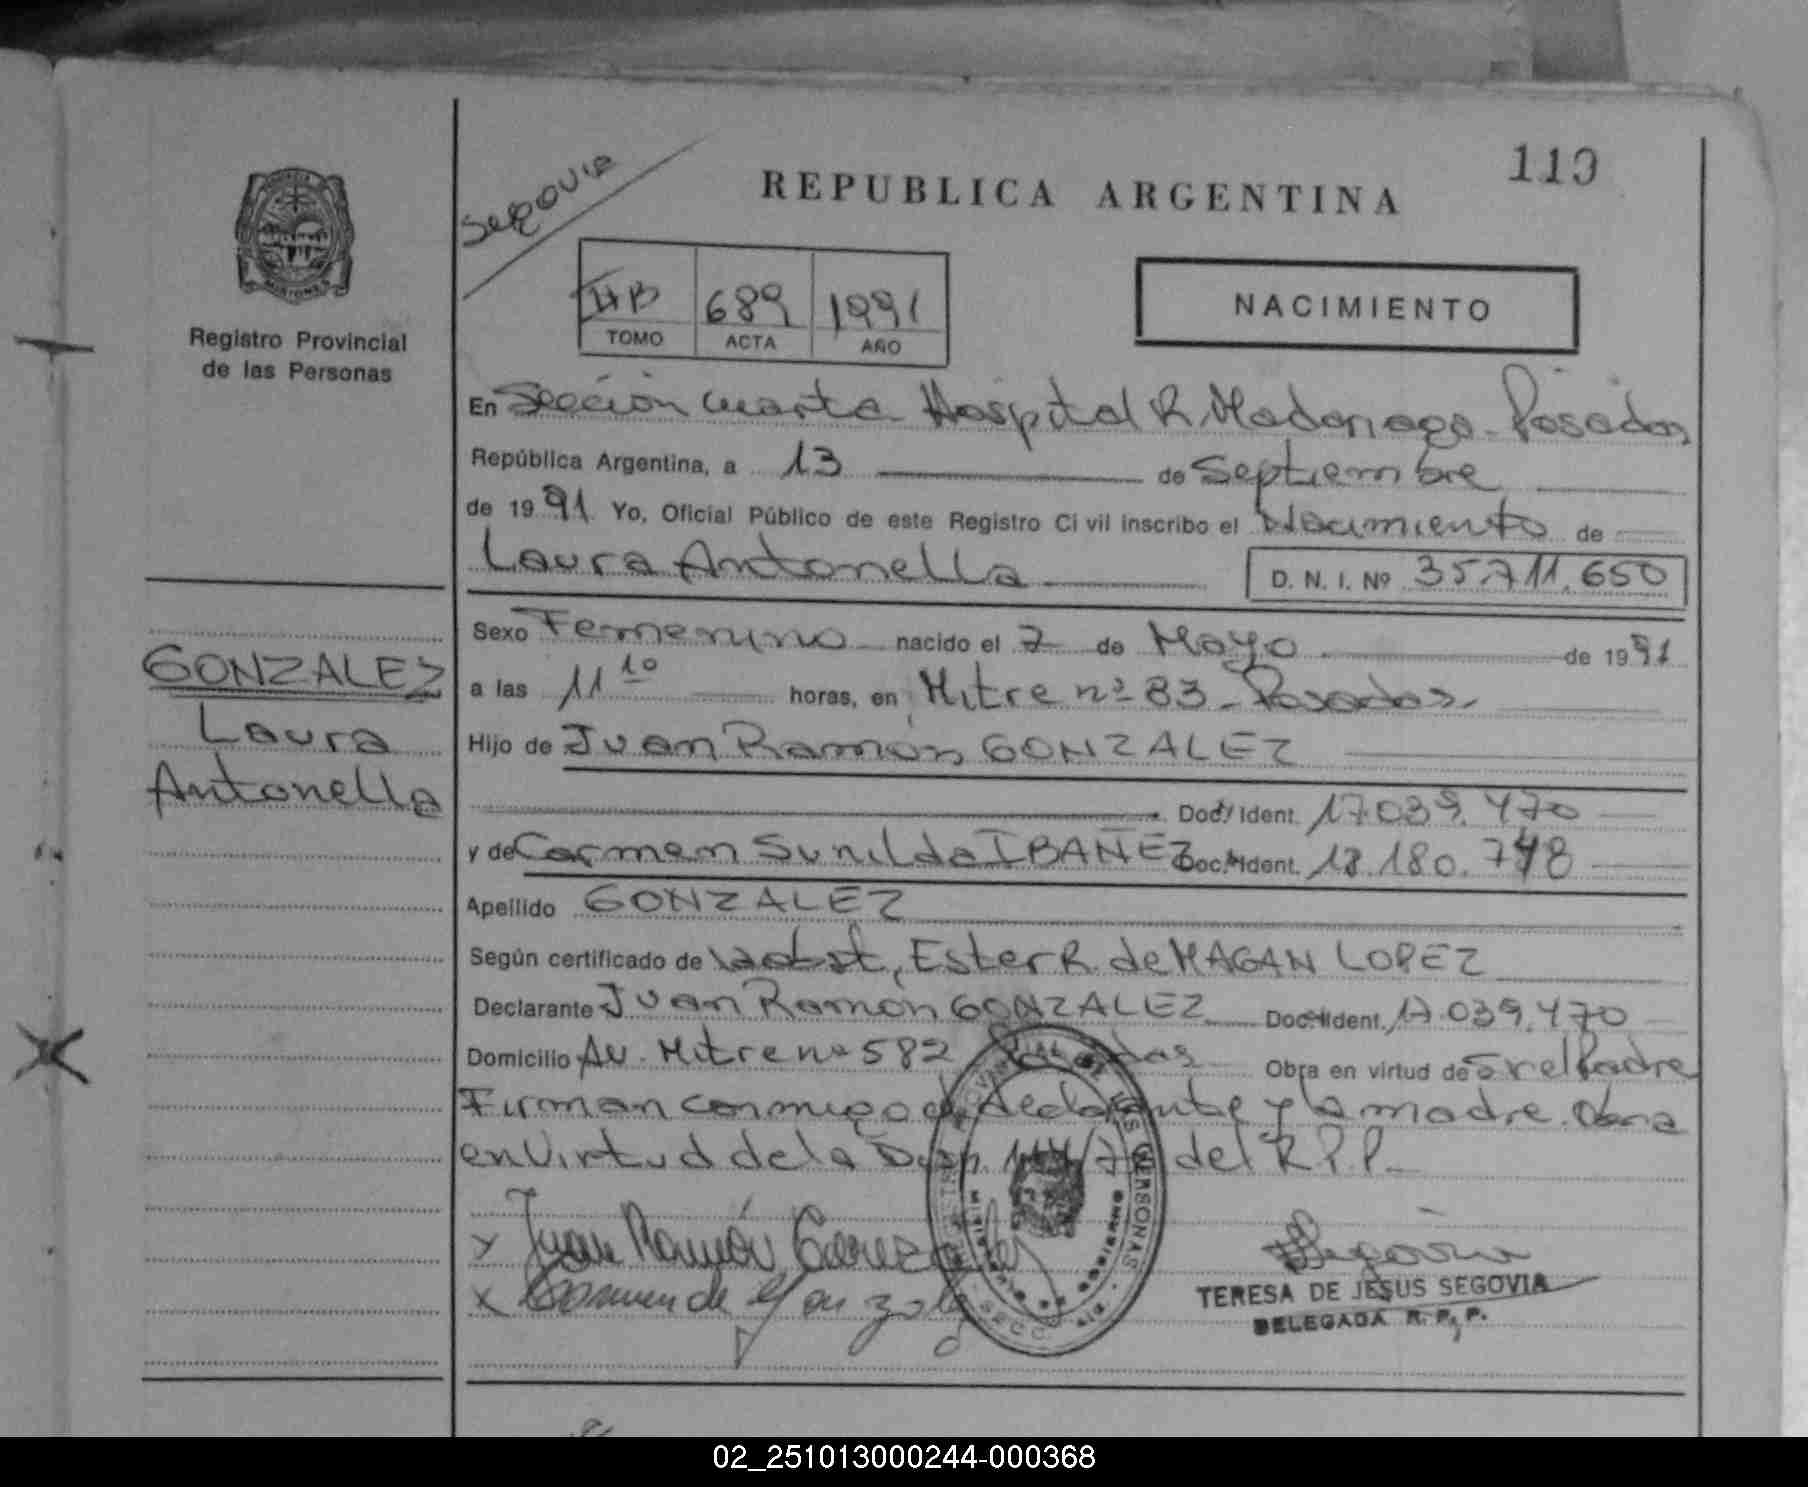 119
Segovia
REPUBLICA ARGENTINA
4B 689 1991
TOMO ACTA AÑO
NACIMIENTO
Registro Provincial
de las Personas
En Sección cuarta Hospital R. Madariaga - Posadas
República Argentina, a 13 de Septiembre
de 1991 Yo, Oficial Público de este Registro Civil inscribo el Nacimiento de
Laura Antonella D. N. I. Nº 35.711.650
GONZALEZ
Laura
Antonella
Sexo Femenino nacido el 7 de Mayo de 1991
a las 11 10 horas, en Mitre nº 83 - Posadas.
Hijo de Juan Ramón GONZALEZ
Doc/ Ident. 17.039.470
y de Carmen Sunilda IBAÑEZ Doc. Ident. 18.180.748
Apellido GONZALEZ
Según certificado de la obst, Ester R. de MAGAN LOPEZ
Declarante Juan Ramón GONZALEZ Doc. Ident. 17.039.470
Domicilio Av. Mitre nº 582 Posadas Obra en virtud de Ser el Padre
Firman conmigo el declarante y la madre. Obra
en Virtud de la Disp. /7 del R.P.P.
x Juan Ramón Gonzalez
x Carmen de Gonzalez
Segovia
TERESA DE JESUS SEGOVIA
DELEGADA R. P. P.
02_251013000244-000368